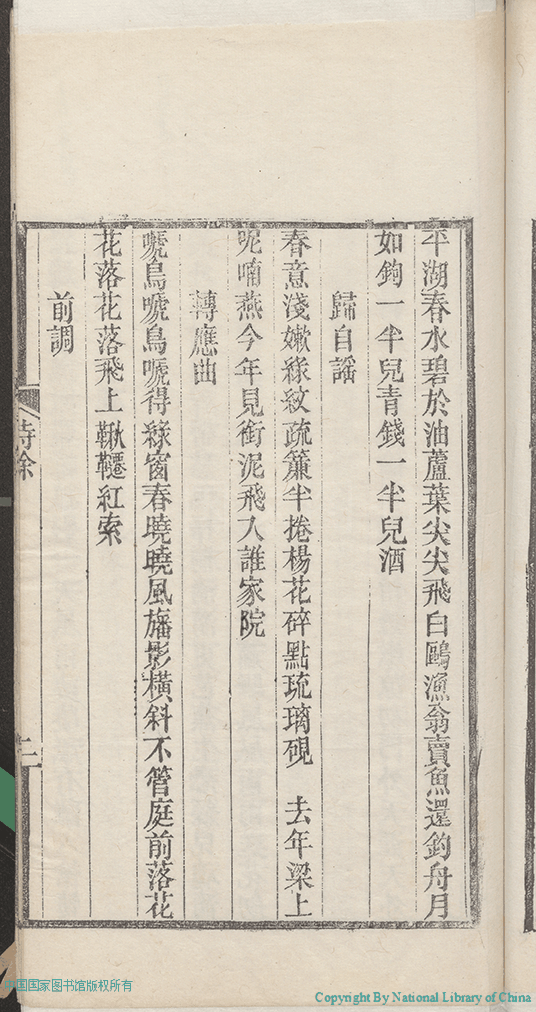 平湖春水碧於油蘆葉尖尖飛白鷗漁翁賣魚還釣舟月
如鉤一半兒青錢一半兒酒
歸自謠
春意淺嫩綠紋疏簾半捲楊花碎點琉璃硯　去年梁上
呢喃燕今年見銜泥飛入誰家院
轉應曲
嗁鳥嗁鳥嗁得綠窗春曉曉風旛影橫斜不管庭前落花
花落花落飛上鞦韆紅索
前調
詩餘
二
中国国家图书馆版权所有
Copyright By National Library of China